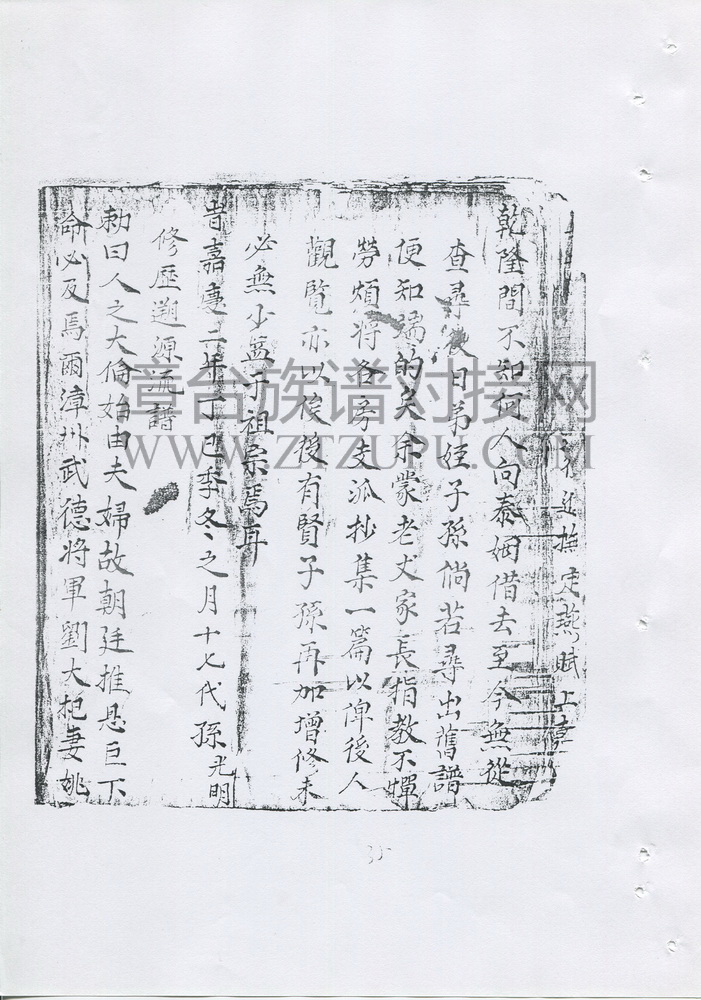 史燕賦上
乾隆間不知何人向泰姆借去至今無從
查尋後日弟姪子孫倘若尋出舊譜
便知端的矣余蒙老丈家長指教不憚
勞煩将各房支派抄集一篇以俾後人
觀覽亦以俟後有賢子孫再加增修未
必無少益于祖宗焉耳
昔嘉慶二年丁巳季冬之月十七代孫光明
修歷遡源流譜
勅曰人之大倫始由夫婦故朝廷推恩臣下
命必及焉爾漳州武德将軍劉大妻姚
章台族谱对接网
WWW.ZTZUPU.COM
35